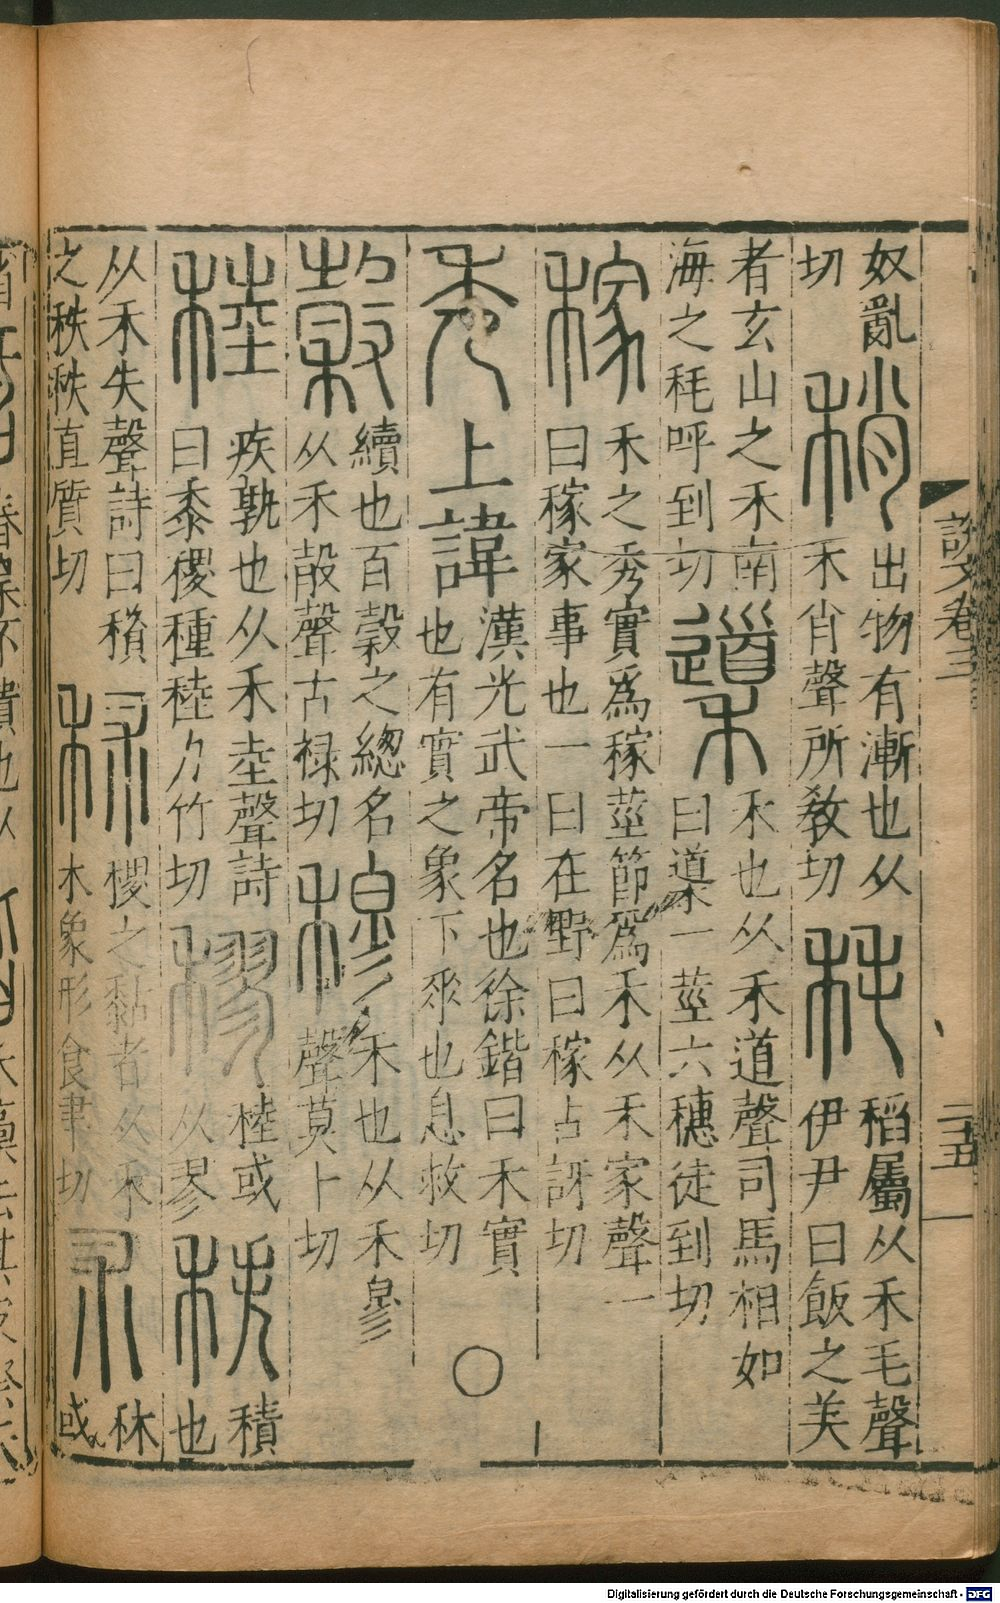 奴亂切 稍 出物有漸也从禾肖聲所教切 秏 稻屬从禾毛聲伊尹曰飯之美
者玄山之禾南海之秏呼到切 䆃 禾也从禾道聲司馬相如曰䆃一莖六穗徒到切
稼 禾之秀實爲稼莖節爲禾从禾家聲一曰稼家事也一曰在野曰稼古訝切
秀 上諱 漢光武帝名也徐鍇曰禾實也有實之象下垂也息救切
穀 續也百穀之總名从禾㱿聲古祿切 穆 禾也从禾㣎聲莫卜切
稑 疾孰也从禾坴聲詩曰黍稷種稑力竹切 穋 稑或从翏 秩 積也
从禾失聲詩曰䅩之秩秩直質切 秫 稷之黏者从禾朮象形食聿切 朮 秫或
說文卷三
二十五
Digitalisierung gefördert durch die Deutsche Forschungsgemeinschaft - DFG